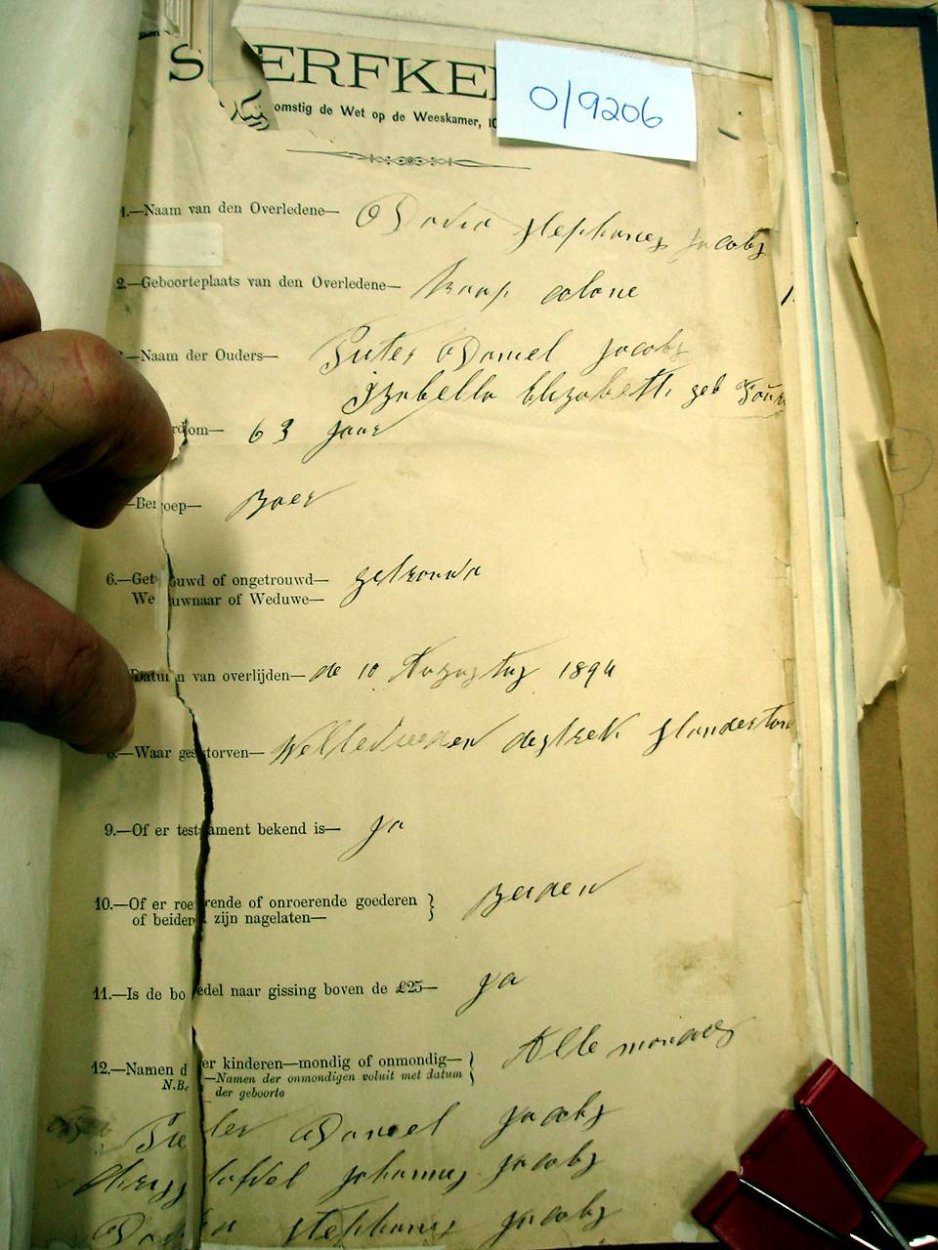 S ERFKE
0/9206
omstig de Wet op de Weeskamer,
1.—Naam van den Overledene— David Stephanus Jacobs
2.—Geboorteplaats van den Overledene— Kaap Colone
—Naam der Ouders— Pieter Daniel Jacobs
Izabella Elizabeth geb
rdom— 63 Jaar
—Beroep— Boer
6.—Getrouwd of ongetrouwd— getrouwd
We uwnaar of Weduwe—
Datum van overlijden— de 10 Augustus 1894
8.—Waar gestorven— Weltevreden destrek Standerton
9.—Of er testament bekend is— Ja
10.—Of er roerende of onroerende goederen
of beiden zijn nagelaten— Beiden
11.—Is de boedel naar gissing boven de £25— Ja
12.—Namen der kinderen—mondig of onmondig— Alle mondig
N.B.—Namen der onmondigen voluit met datum
der geboorte
Pieter Daniel Jacobs
Christoffel Johannes Jacobs
David Stephanus Jacobs